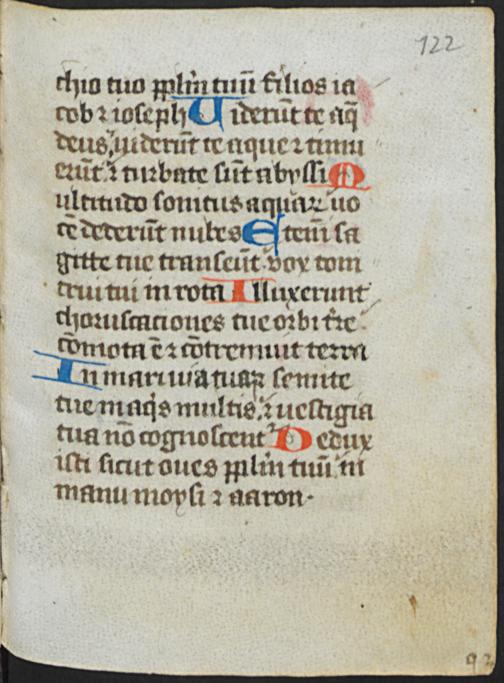 122
chio tuo pplm̄ tuū filios ia
cob ⁊ ioseph Uiderūt te aq̄
deus, uiderūt te aque ⁊ timu
erūt, ⁊ turbate sūt abyssi M
ultitudo sonitus aquaꝝ uo
cē dederūt nubes Etem̄ sa
gitte tue transeūt. vox toni
trui tui in rota Illuxerunt
choruscaciones tue orbi t̄re.
cōmota ē ⁊ cōtremuit terra
In mari uia tua ⁊ semite
tue in aq̄s multis, ⁊ uestigia
tua nō cognoscent Dedux
isti sicut oues pplm̄ tuū in
manu moysi ⁊ aaron.
92